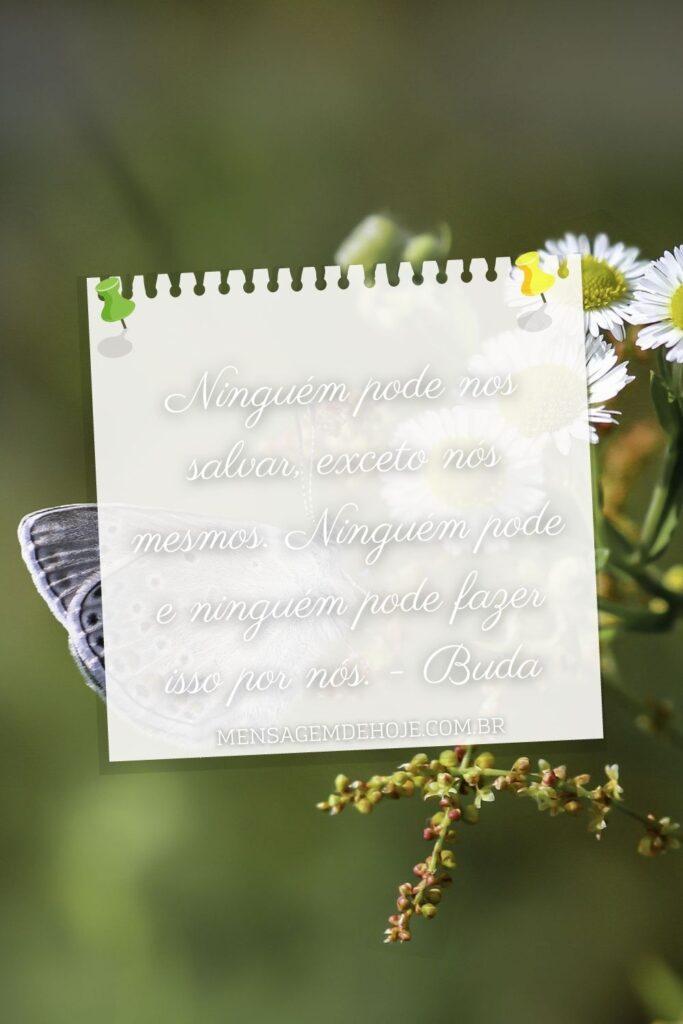 Ninguém pode nos
salvar, exceto nós
mesmos. Ninguém pode
e ninguém pode fazer
isso por nós. - Buda
MENSAGEMDEHOJE.COM.BR